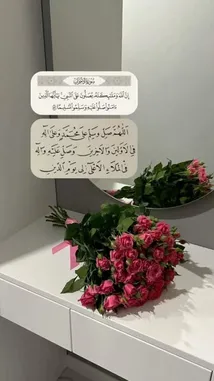 سورة الأحزاب
إِنَّ اللَّهَ وَمَلَائِكَتَهُ يُصَلُّونَ عَلَى النَّبِيِّ يَا أَيُّهَا الَّذِينَ
آمَنُوا صَلُّوا عَلَيْهِ وَسَلِّمُوا تَسْلِيمًا
اللَّهُمَّ صَلِّ وَسَلِّمْ عَلَى مُحَمَّدٍ وَعَلَى آلِهِ
فِي الأَوَّلِينَ وَالآخِرِينَ وَصَلِّ عَلَيْهِ وَآلِهِ
فِي المَلَإِ الأَعْلَى إِلَى يَوْمِ الدِّينِ